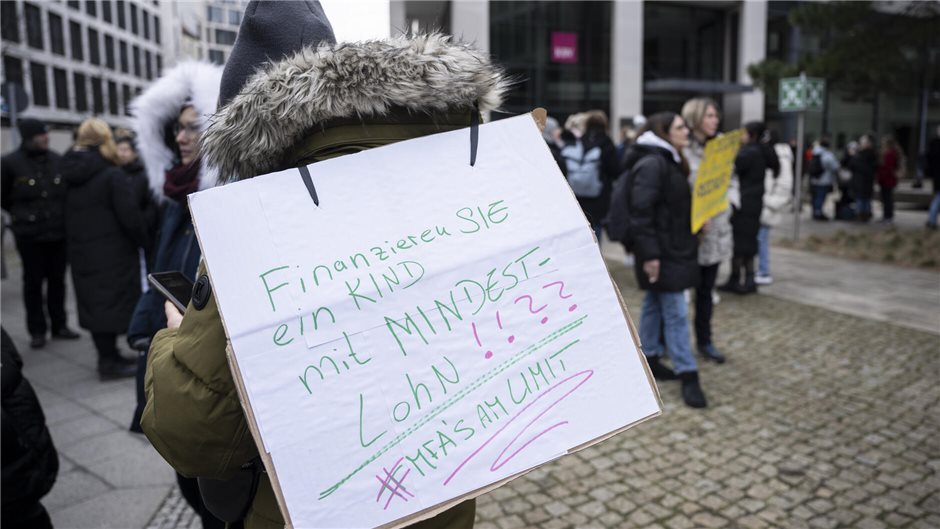 Finanzieren SIE
ein KIND
mit MINDEST-
LohN !!??
#MFA'S AM LIMIT